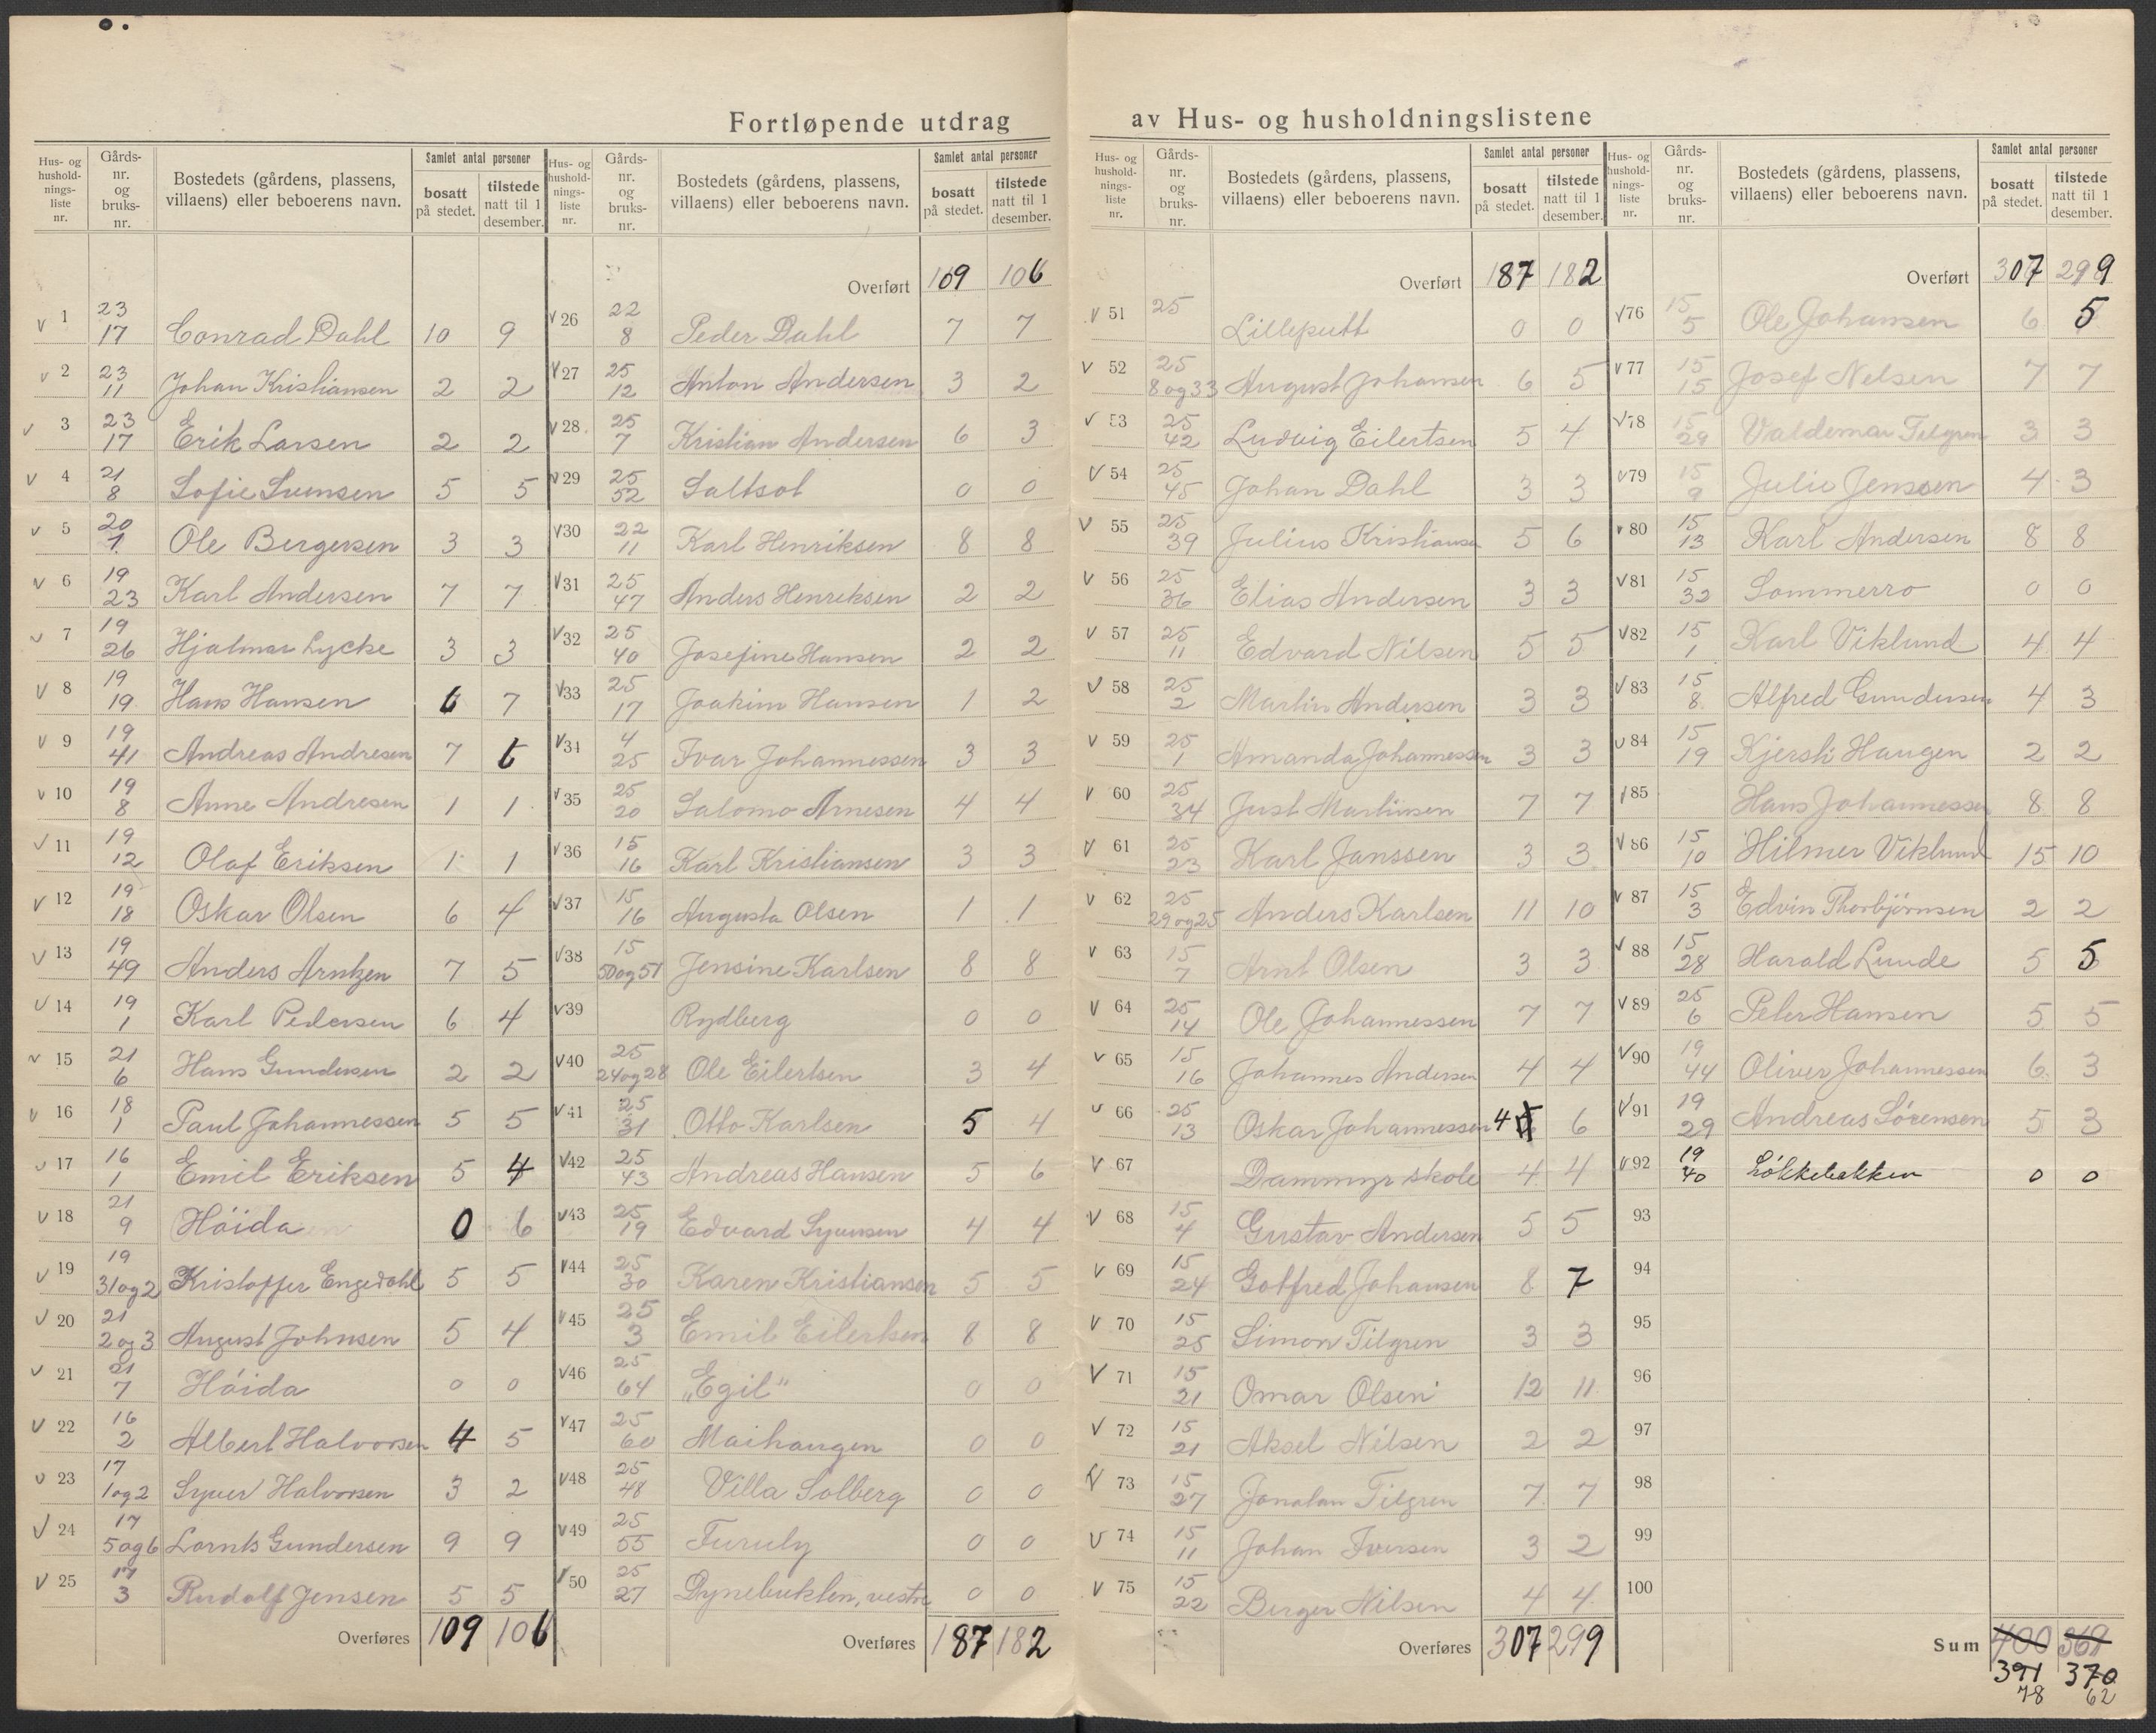 Fortløpende utdrag av Hus- og husholdningslistene
Hus- og hushold-nings-liste nr. | Gårds-nr. og bruks-nr. | Bostedets (gårdens, plassens, villaens) eller beboerens navn. | Samlet antal personer: bosatt på stedet. | tilstede natt til 1 desember.
1 | 23 17 | Conrad Dahl | 10 | 9
2 | 23 11 | Johan Kristiansen | 2 | 2
3 | 23 17 | Erik Larsen | 2 | 2
4 | 21 8 | Sofie Svensen | 5 | 5
5 | 20 1 | Ole Bergersen | 3 | 3
6 | 19 23 | Karl Andersen | 7 | 7
7 | 19 26 | Hjalmar Lycke | 3 | 3
8 | 19 19 | Hans Hansen | 6 | 7
9 | 19 41 | Andreas Andresen | 7 | 6
10 | 19 8 | Anne Andresen | 1 | 1
11 | 19 12 | Olaf Eriksen | 1 | 1
12 | 19 18 | Oskar Olsen | 6 | 4
13 | 19 49 | Anders Arntzen | 7 | 5
14 | 19 1 | Karl Pedersen | 6 | 4
15 | 21 6 | Hans Gundersen | 2 | 2
16 | 18 1 | Paul Johannessen | 5 | 5
17 | 16 1 | Emil Eriksen | 5 | 4
18 | 21 9 | Høida | 0 | 6
19 | 19 31og2 | Kristoffer Engedahl | 5 | 5
20 | 21 2og3 | August Johnsen | 5 | 4
21 | 21 7 | Høida | 0 | 0
22 | 16 2 | Albert Halvorsen | 4 | 5
23 | 17 1og2 | Syver Halvorsen | 3 | 2
24 | 17 5og6 | Lornts Gundersen | 9 | 9
25 | 17 3 | Rudolf Jensen | 5 | 5
Overføres 109 | 106
Hus- og hushold-nings-liste nr. | Gårds-nr. og bruks-nr. | Bostedets (gårdens, plassens, villaens) eller beboerens navn. | Samlet antal personer: bosatt på stedet. | tilstede natt til 1 desember.
Overført 109 | 106
26 | 22 8 | Peder Dahl | 7 | 7
27 | 25 12 | Anton Andersen | 3 | 2
28 | 25 7 | Kristian Andersen | 6 | 3
29 | 25 52 | Saltsol | 0 | 0
30 | 22 11 | Karl Henriksen | 8 | 8
31 | 25 47 | Anders Henriksen | 2 | 2
32 | 25 40 | Josefine Hansen | 2 | 2
33 | 25 17 | Joakim Hansen | 1 | 2
34 | 4 25 | Ivar Johannessen | 3 | 3
35 | 25 20 | Salomo Arnesen | 4 | 4
36 | 15 16 | Karl Kristiansen | 3 | 3
37 | 15 16 | Augusta Olsen | 1 | 1
38 | 15 50og51 | Jensine Karlsen | 8 | 8
39 | Rydberg | 0 | 0
40 | 25 24og28 | Ole Eilertsen | 3 | 4
41 | 25 31 | Otto Karlsen | 5 | 4
42 | 25 43 | Andreas Hansen | 5 | 6
43 | 25 19 | Edvard Syversen | 4 | 4
44 | 25 30 | Karen Kristiansen | 5 | 5
45 | 25 3 | Emil Eilertsen | 8 | 8
46 | 25 64 | „Egil" | 0 | 0
47 | 25 60 | Maihaugen | 0 | 0
48 | 25 48 | Villa Solberg | 0 | 0
49 | 25 55 | Furuly | 0 | 0
50 | 25 27 | Dynebukten, vestre | 0 | 0
Overføres 187 | 182
Hus- og hushold-nings-liste nr. | Gårds-nr. og bruks-nr. | Bostedets (gårdens, plassens, villaens) eller beboerens navn. | Samlet antal personer: bosatt på stedet. | tilstede natt til 1 desember.
Overført 187 | 182
51 | 25 | Lilleputt | 0 | 0
52 | 25 8og33 | August Johansen | 6 | 5
53 | 25 42 | Ludvig Eilertsen | 5 | 4
54 | 25 45 | Johan Dahl | 3 | 3
55 | 25 39 | Julius Kristiansen | 5 | 6
56 | 25 36 | Elias Andersen | 3 | 3
57 | 25 11 | Edvard Nilsen | 5 | 5
58 | 25 2 | Martin Andersen | 3 | 3
59 | 25 1 | Amanda Johannessen | 3 | 3
60 | 25 34 | Just Martinsen | 7 | 7
61 | 25 23 | Karl Janssen | 3 | 3
62 | 25 29og25 | Anders Karlsen | 11 | 10
63 | 15 7 | Arnt Olsen | 3 | 3
64 | 25 14 | Ole Johannessen | 7 | 7
65 | 15 16 | Johannes Andersen | 4 | 4
66 | 25 13 | Oskar Johannessen | 4 | 6
67 | Dammyr skole | 4 | 4
68 | 15 4 | Gustav Andersen | 5 | 5
69 | 15 24 | Gotfred Johansen | 8 | 7
70 | 15 25 | Simon Tilgren | 3 | 3
71 | 15 21 | Omar Olsen | 12 | 11
72 | 15 21 | Aksel Nilsen | 2 | 2
73 | 15 27 | Jonatan Tilgren | 7 | 7
74 | 15 11 | Johan Iversen | 3 | 2
75 | 15 22 | Berger Nilsen | 4 | 4
Overføres 307 | 299
Hus- og hushold-nings-liste nr. | Gårds-nr. og bruks-nr. | Bostedets (gårdens, plassens, villaens) eller beboerens navn. | Samlet antal personer: bosatt på stedet. | tilstede natt til 1 desember.
Overført 307 | 299
76 | 15 5 | Ole Johansen | 6 | 5
77 | 15 15 | Josef Nelsen | 7 | 7
78 | 15 29 | Valdemar Tilgren | 3 | 3
79 | 15 9 | Julie Jenssen | 4 | 3
80 | 15 13 | Karl Andersen | 8 | 8
81 | 15 32 | Sommerro | 0 | 0
82 | 15 1 | Karl Viklund | 4 | 4
83 | 15 8 | Alfred Gundersen | 4 | 3
84 | 15 19 | Kjersti Haugen | 2 | 2
85 | Hans Johannessen | 8 | 8
86 | 15 10 | Hilmer Viklund | 15 | 10
87 | 15 3 | Edvin Thorbjörnsen | 2 | 2
88 | 15 28 | Harald Lunde | 5 | 5
89 | 25 6 | Peter Hansen | 5 | 5
90 | 19 44 | Oliver Johannessen | 6 | 3
91 | 19 29 | Andreas Sörensen | 5 | 3
92 | 19 40 | Løkkebakken | 0 | 0
93
94
95
96
97
98
99
100
Sum 400 | 369
391 | 370
78 | 62